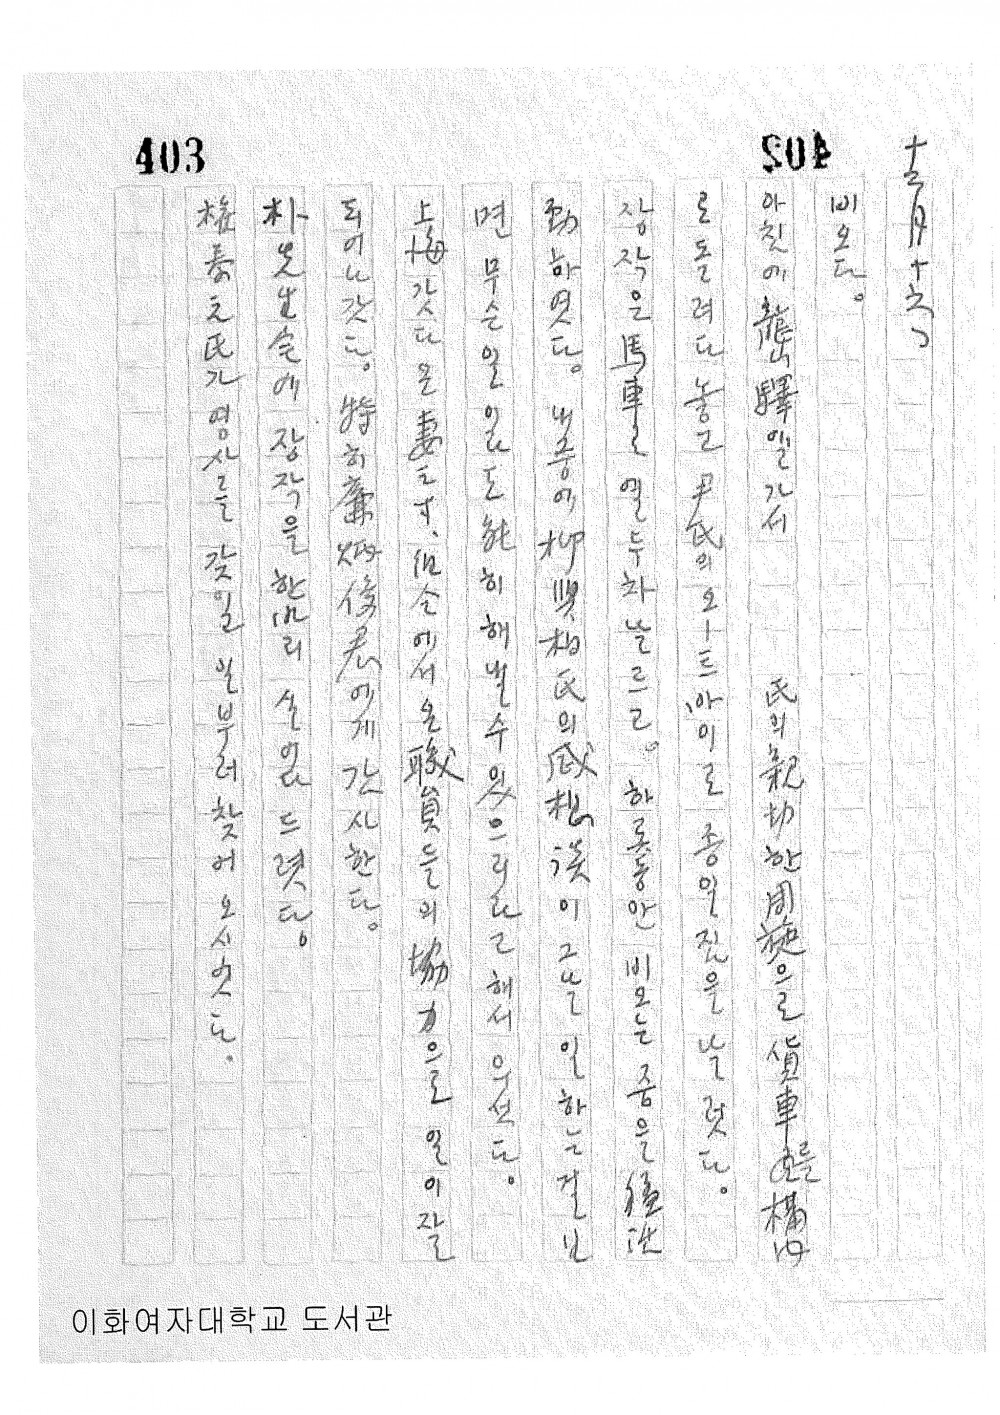 403
402
十二月十六
비오다。
아침에 龍山驛일 가서 氏의 親切한 周旋으로 貨車를 構內
로 돌려다 놓고 尹氏의 오ㅡ드아이로 종일 짐을 날렀다。
장작은 馬車로 열두차 날르고。하로동안 비오는 중을
動하엿다。내중에 柳 氏의 이 그날 일하는걸 보
면 무슨일 일도 能히 해낼수 있으리라고 해서 우섰다。
上海갓다 온 妻도 에서 온 職員들의 協力으로 일이 잘
되어나갓다。特히 廉 俊君에게 감사한다。
朴先生 에 장작을 한 실 드렷다。
權泰 氏가 영사를 갖일 일부러 찾어 오시엇다。
이화여자대학교 도서관